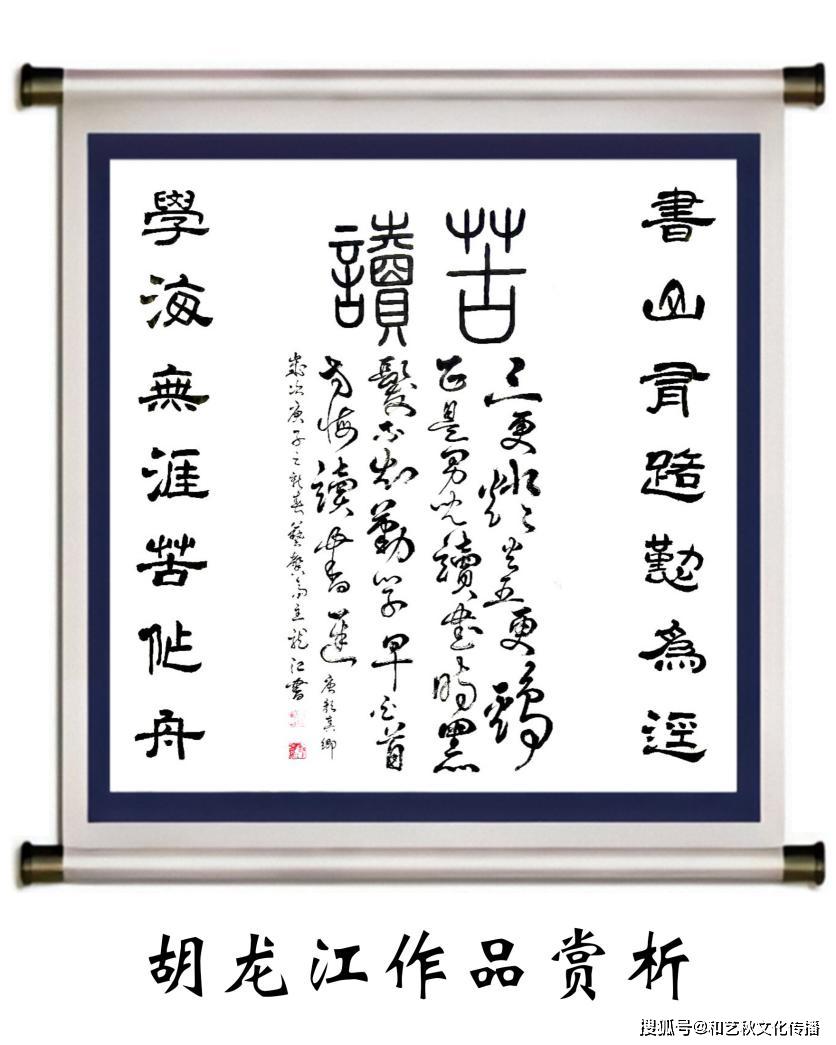 書山有路勤為逕
苦讀
三更燈火五更鷄
正是男兒讀書時黑
髮不知勤學早白首
方悔讀書遲 唐顏真卿
歲次庚子之新春藝馨斋主龍江書
學海無涯苦作舟
胡龙江作品赏析
搜狐号@和艺秋文化传播